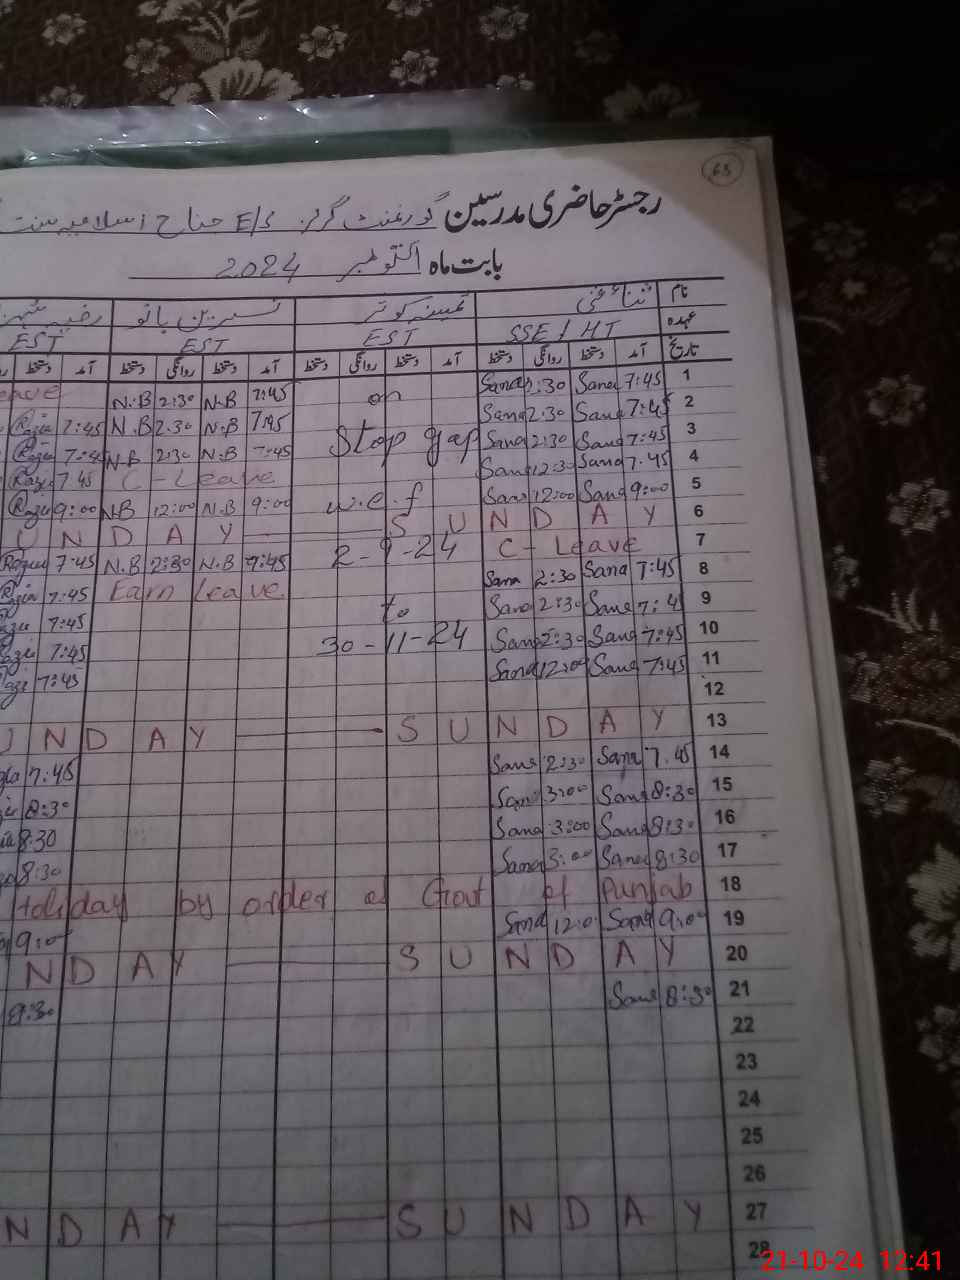 63
رجسٹر حاضری مدرسین گورنمنٹ گرلز E/S جناح اسلامیہ
بابت ماہ اکتوبر 2024
نام ثناء غنی ثمینہ کوثر نسرین بانو رضیہ
عہدہ SSE / HT EST EST EST
تاریخ آمد دستخط روانگی دستخط آمد دستخط روانگی دستخط آمد دستخط روانگی دستخط آمد دستخط
1 7:45 Sana 2:30 Sana on 7:45 N.B 2:30 N.B
2 7:45 Sana 2:30 Sana 7:45 N.B 2:30 N.B 7:45 Razia
3 7:45 Sana 2:30 Sana Stop gap 7:45 N.B 2:30 N.B 7:45 Razia
4 7:45 Sana 12:30 Sana C - Leave 7:45 Razia
5 9:00 Sana 12:00 Sana w.e.f 9:00 N.B 12:00 N.B 9:00 Razia
6 S U N D A Y S U N D A Y
7 C - Leave 2-9-24 7:45 N.B 2:30 N.B 7:45 Razia
8 7:45 Sana 2:30 Sana Earn Leave 7:45 Razia
9 7:45 Sana 2:30 Sana to 7:45
10 7:45 Sana 2:30 Sana 30-11-24 7:45
11 7:45 Sana 12:00 Sana 7:45
12
13 S U N D A Y U N D A Y
14 7:45 Sana 2:30 Sana 7:45
15 8:30 Sana 3:00 Sana 8:30
16 8:30 Sana 3:00 Sana 8:30
17 8:30 Sana 3:00 Sana 8:30
18 Holiday by order of Govt of Punjab
19 9:00 Sana 12:0 Sana 9:00
20 S U N D A Y N D A Y
21 8:30 Sana 8:30
22
23
24
25
26
27 S U N D A Y N D A Y
28
21-10-24 12:41